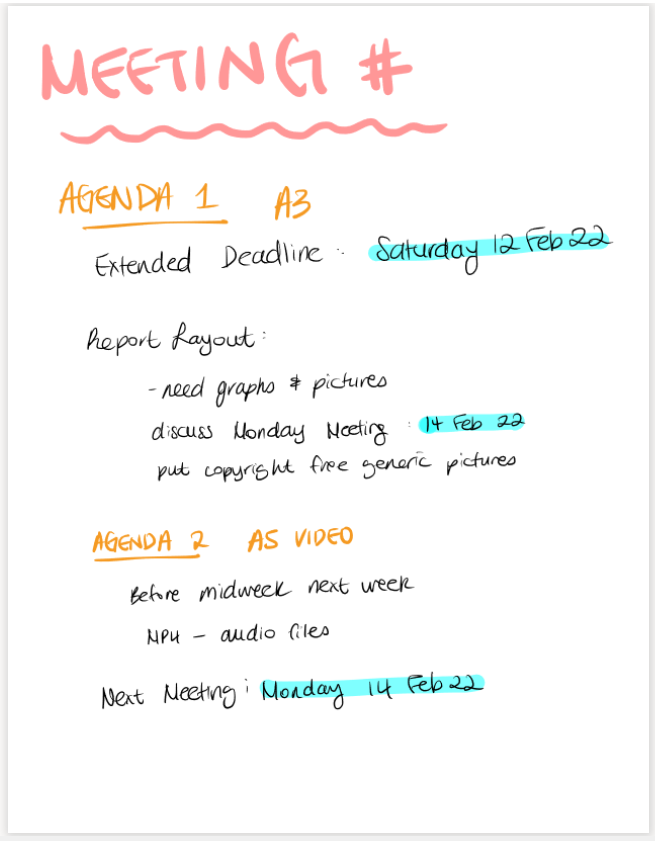 MEETING #
AGENDA 1 A3
Extended Deadline : Saturday 12 Feb 22
Report Layout :
- need graphs & pictures
discuss Monday Meeting : 14 Feb 22
put copyright free generic pictures
AGENDA 2 A5 VIDEO
Before midweek next week
MP4 - audio files
Next Meeting : Monday 14 Feb 22